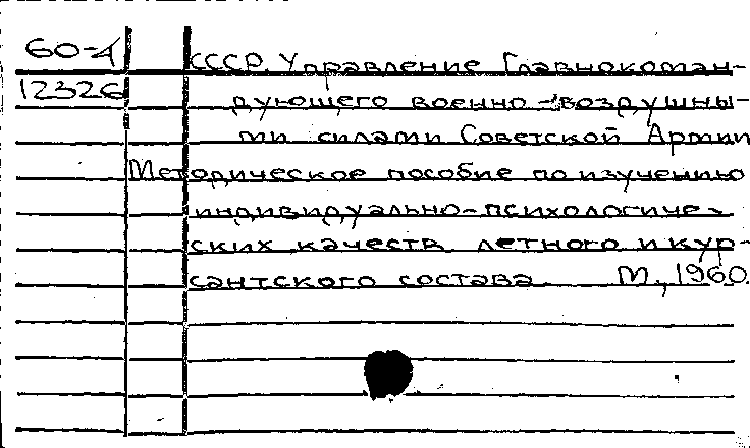 60-4
12326
СССР. Управление Главнокоман-
дующего военно-воздушны-
ми силами Советской Армии
Методическое пособие по изучению
индивидуально-психологиче-
ских качеств летного и кур-
сантского состава. М., 1960.